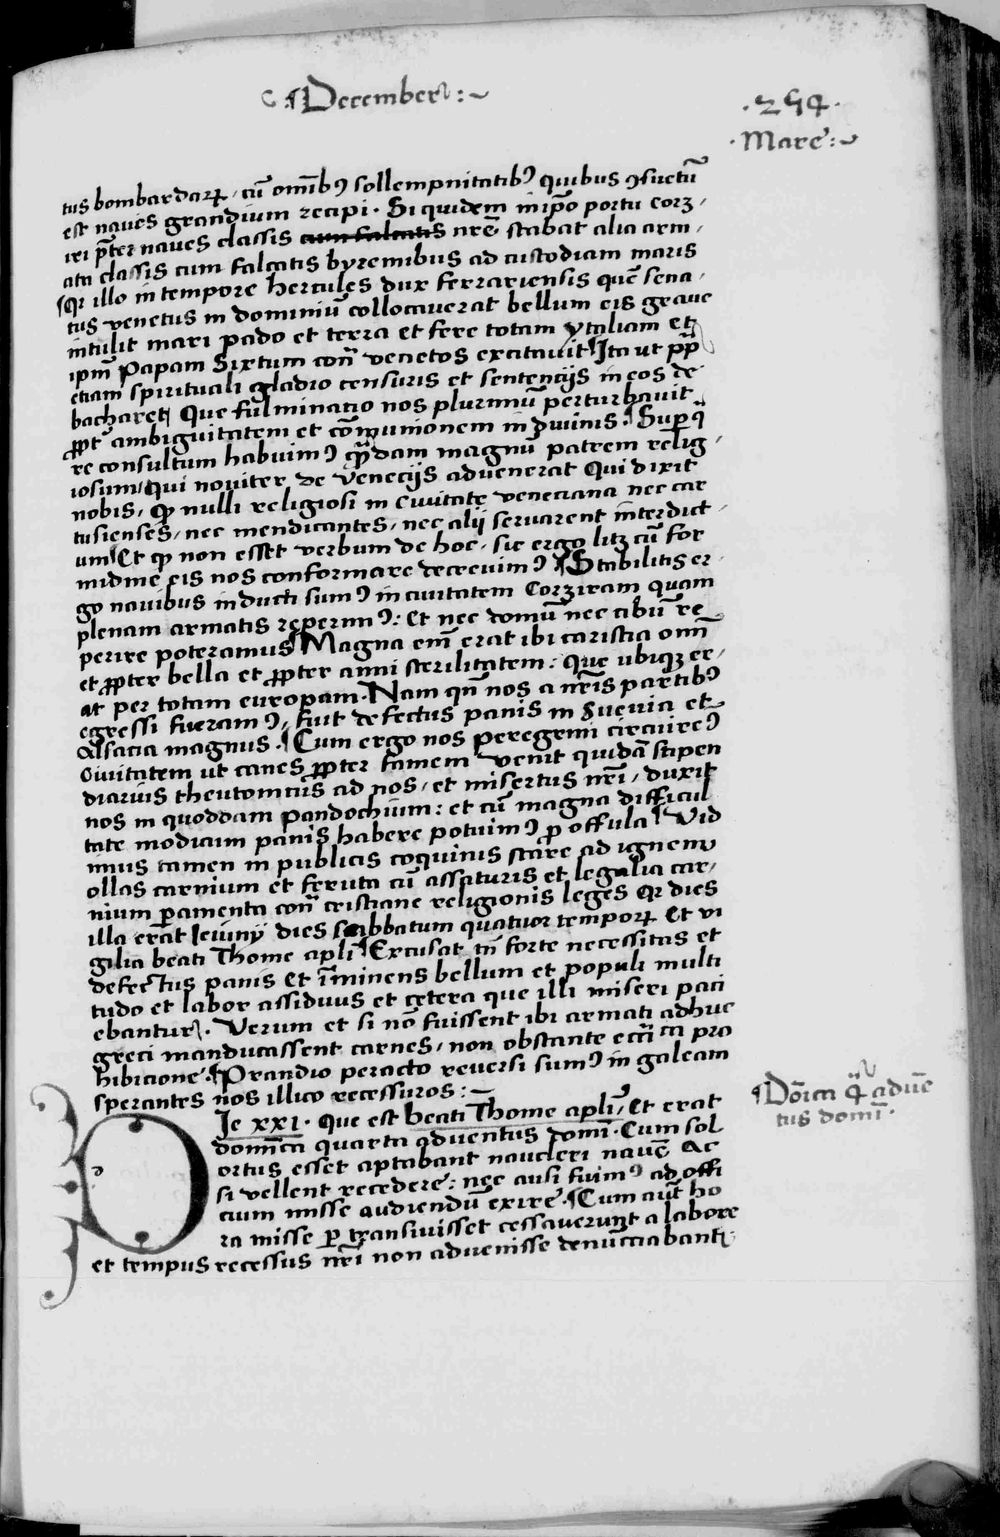 ¶December:~
·254·
·Mare:~
tus bombardaꝝ, cū omībꝰ sollempnitatibꝰ quibus ꝯsuetū
est naues grandium recipi. Si quidem in ipō portu corz,
iri p̄ter naues classis cum falcatis nr̄e stabat alia arm,
ata classis cum falcatis byremibus ad custodiam maris
¶Qr illo in tempore hercules dux ferrariensis quē sena,
tus venetus in dominiū collocauerat bellum eis graue
intulit mari pado et terra et fere totam ytaliam et
ipm̄ Papam Sixtum con̄ venetos excitauit ¶Ita ut pp̄
etiam spirituali gladio censuris et sentencijs in eos de
bacharet᷑ Que fulminatio nos plurimū perturbauit
ꝓpt᷑ ambiguitatem et cōmunionem in diuinis. ¶Sup qꝰ
re consultum habuimꝰ quēdam magnū patrem relig,
iosum, qui nouiter de Venecijs aduenerat Qui dixit
nobis, qꝫ nulli religiosi in Ciuitate veneciana nec car
tusienses, nec mendicantes, nec alij seruarent interdict,
um ¶Et qꝫ non esset verbum de hoc, sic ergo litꝫ cū for
midine eis nos conformare decreuimꝰ ¶Stabilitis er,
go nauibus inducti sumꝰ in ciuitatem Corziram quam
plenam armatis reperimꝰ: Et nec domū nec cibū re
perire poteramus ¶Magna em̄ erat ibi caristia om̄
et ꝓpter bella et ꝓpter anni sterilitatem: Que ubiqꝫ er,
at per totam europam. Nam qn̄ nos a nr̄is partibꝰ
egressi fueramꝰ, fuit defectus panis in Sueuia et
Alsacia magnus. ¶Cum ergo nos peregrini circuiremꝰ
Ciuitatem ut canes ꝓpter famem venit quidā stipen
diarius theutonicus ad nos, et misertus nr̄i, duxit
nos in quoddam pandochium: et cū magna difficul
tate modicum panis habere potuimꝰ ꝓ offula ¶Vid
imus tamen in publicis coquinis stare ad ignem
ollas carnium et feruta cū assaturis et legalia car,
nium p̄amenta con̄ cristiane religionis leges Qr dies
illa erat Ieiunij dies sabbatum quatuor temporꝝ Et vi
gilia beati Thome apli ¶Excusat tn̄ forte necessitas et
defectus panis Et īminens bellum et populi multi
tudo et labor assiduus et cetera que illi miseri paci
ebantur. Verum et si nō fuissent ibi armati adhuc
greci manducassent carnes, non obstante ecc̄tica pro
hibicione. ¶Prandio peracto reuersi sumꝰ in galeam
sperantes nos illico recessuros:~
DIe xxi. Que est beati Thome apli, Et erat
dominica quarta aduentus domī. Cum sol
ortus esset aptabant naucleri nauē Ac
si vellent recedere: nec ausi fuimꝰ ad offi
cium misse audiendū exire. ¶Cum aūt ho
ra misse ꝑ transiuisset cessauerunt a labore
et tempus recessus nr̄i non aduenisse denunciabant.
¶Dōica q̄ aduē
tus domī.